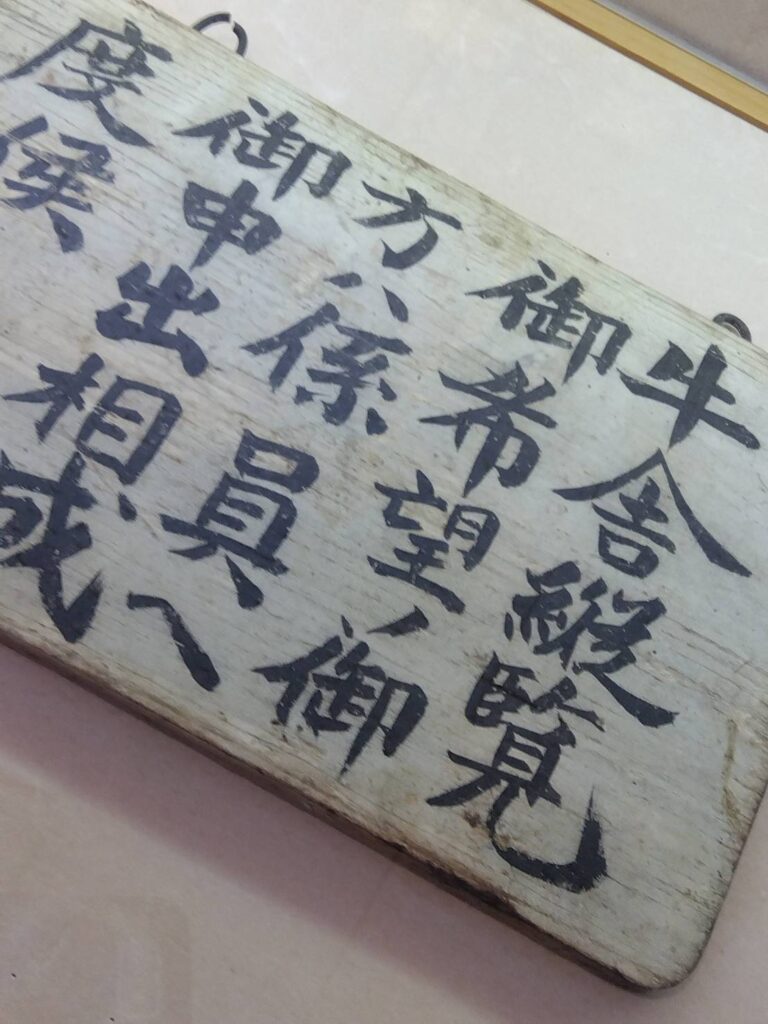 牛舎縦覧
御希望ノ御
方ハ係員へ
御申出相成
度候